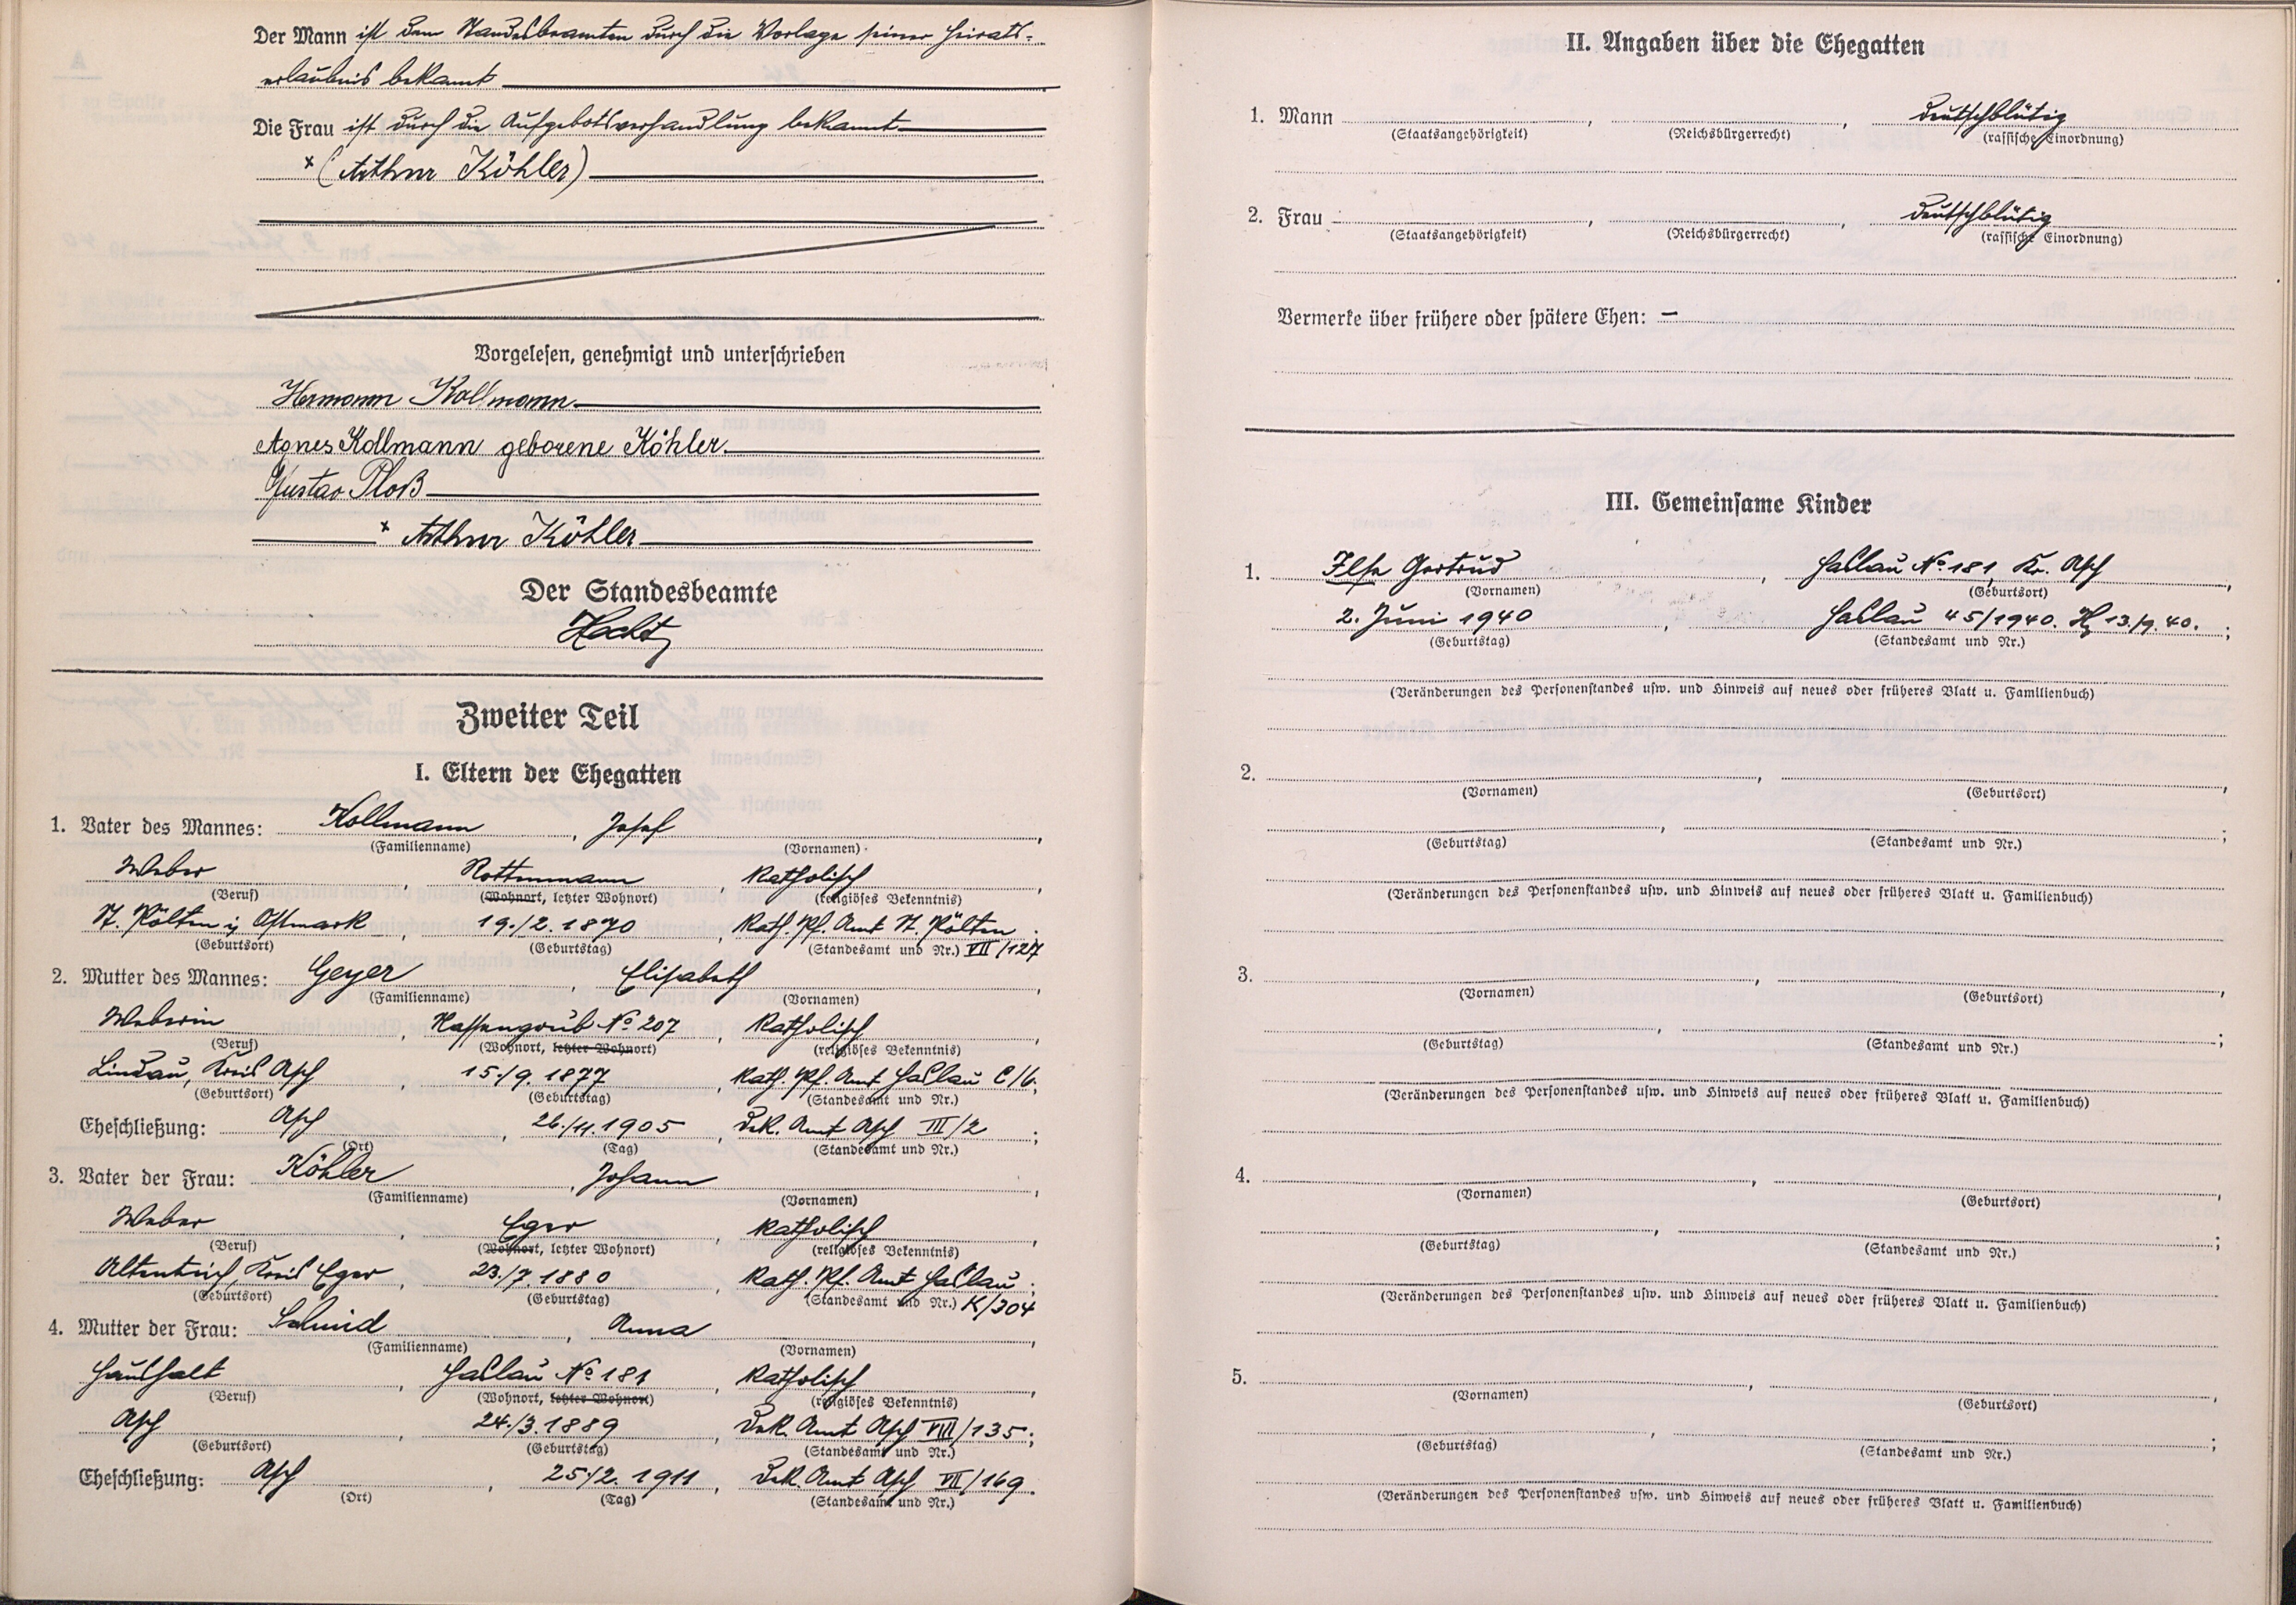 Der Mann ist dem Standesbeamten durch die Vorlage seiner Heirats-
erlaubnis bekannt
Die Frau ist durch die Aufgebotsverhandlung bekannt
x (Arthur Köhler)
Vorgelesen, genehmigt und unterschrieben
Hermann Kollmann
Agnes Kollmann geborene Köhler
Gustav Ploß
x Arthur Köhler
Der Standesbeamte
Zweiter Teil
I. Eltern der Ehegatten
1. Vater des Mannes: Kollmann, Josef,
(Familienname) (Vornamen)
Weber, Rottenmann, katholisch,
(Beruf) (Wohnort, letzter Wohnort) (religiöses Bekenntnis)
St. Pölten i. Ostmark, 19./2.1870, Kath. Pf. Amt St. Pölten;
(Geburtsort) (Geburtstag) (Standesamt und Nr.) VII/127
2. Mutter des Mannes: Geyer, Elisabeth,
(Familienname) (Vornamen)
Weberin, Hassengrub No 207, katholisch,
(Beruf) (Wohnort, letzter Wohnort) (religiöses Bekenntnis)
Lindau, Kreis Asch, 15./9.1877, Kath. Pf. Amt Haslau C/6;
(Geburtsort) (Geburtstag) (Standesamt und Nr.)
Eheschließung: Asch, 26./11.1905, Dek. Amt Asch III/2;
(Ort) (Tag) (Standesamt und Nr.)
3. Vater der Frau: Köhler, Johann,
(Familienname) (Vornamen)
Weber, Eger, katholisch,
(Beruf) (Wohnort, letzter Wohnort) (religiöses Bekenntnis)
Altenteich, Kreis Eger, 23./7.1880, Kath. Pf. Amt Haslau;
(Geburtsort) (Geburtstag) (Standesamt und Nr.) K/304
4. Mutter der Frau: Schmid, Anna,
(Familienname) (Vornamen)
Haushalt, Haslau No 181, katholisch,
(Beruf) (Wohnort, letzter Wohnort) (religiöses Bekenntnis)
Asch, 24./3.1889, Dek. Amt Asch VIII/135;
(Geburtsort) (Geburtstag) (Standesamt und Nr.)
Eheschließung: Asch, 25./2.1911, Dek. Amt Asch VII/169.
(Ort) (Tag) (Standesamt und Nr.)
II. Angaben über die Ehegatten
1. Mann , , deutschblütig
(Staatsangehörigkeit) (Reichsbürgerrecht) (rassische Einordnung)
2. Frau , , deutschblütig
(Staatsangehörigkeit) (Reichsbürgerrecht) (rassische Einordnung)
Vermerke über frühere oder spätere Ehen: —
III. Gemeinsame Kinder
1. Ilse Gertrud, Haslau No 181, Kr. Asch,
(Vornamen) (Geburtsort)
2. Juni 1940, Haslau 45/1940. 13./9.40.;
(Geburtstag) (Standesamt und Nr.)
(Veränderungen des Personenstandes usw. und Hinweis auf neues oder früheres Blatt u. Familienbuch)
2. , ,
(Vornamen) (Geburtsort)
, ;
(Geburtstag) (Standesamt und Nr.)
(Veränderungen des Personenstandes usw. und Hinweis auf neues oder früheres Blatt u. Familienbuch)
3. , ,
(Vornamen) (Geburtsort)
, ;
(Geburtstag) (Standesamt und Nr.)
(Veränderungen des Personenstandes usw. und Hinweis auf neues oder früheres Blatt u. Familienbuch)
4. , ,
(Vornamen) (Geburtsort)
, ;
(Geburtstag) (Standesamt und Nr.)
(Veränderungen des Personenstandes usw. und Hinweis auf neues oder früheres Blatt u. Familienbuch)
5. , ,
(Vornamen) (Geburtsort)
, ;
(Geburtstag) (Standesamt und Nr.)
(Veränderungen des Personenstandes usw. und Hinweis auf neues oder früheres Blatt u. Familienbuch)